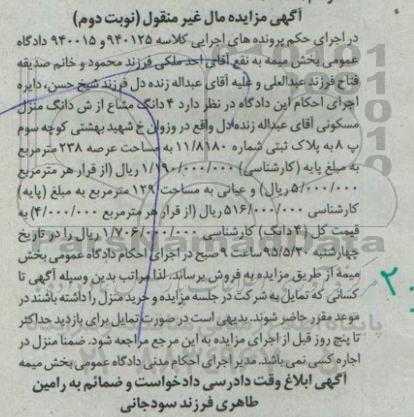 آگهی مزایده مال غیر منقول (نوبت دوم)
در اجرای حکم پرونده های اجرایی کلاسه ۹۴۰۱۲۵ و ۹۴۰۰۱۵ دادگاه
عمومی بخش میمه به نفع آقای احد ملکی فرزند محمود و خانم صدیقه
فتاح فرزند عبدالعلی و علیه آقای عبداله زنده دل فرزند شیخ حسن، دایره
اجرای احکام این دادگاه در نظر دارد ۴ دانگ مشاع از ش دانگ منزل
مسکونی آقای عبداله زنده دل واقع در وزوان خ شهید بهشتی کوچه سوم
پ ۸ به پلاک ثبتی شماره ۱۱/۸۱۸۰ به مساحت عرصه ۲۳۸ مترمربع
به مبلغ پایه (کارشناسی) ۱/۱۹۰/۰۰۰/۰۰۰ ریال (از قرار هر مترمربع
۵/۰۰۰/۰۰۰ ریال) و عیانی به مساحت ۱۲۹ مترمربع به مبلغ (پایه)
کارشناسی ۵۱۶/۰۰۰/۰۰۰ ریال (از قرار هر مترمربع ۴/۰۰۰/۰۰۰) به
قیمت کل (۴ دانگ) کارشناسی ۱/۷۰۶/۰۰۰/۰۰۰ ریال را در تاریخ
چهارشنبه ۹۵/۵/۲۰ ساعت ۹ صبح در اجرای احکام دادگاه عمومی بخش
میمه از طریق مزایده به فروش برساند. لذا مراتب بدین وسیله آگهی تا
کسانی که تمایل به شرکت در جلسه مزایده و خرید منزل را داشته باشند در
موعد مقرر حاضر شوند. بدیهی است در صورت تمایل برای بازدید حداکثر
تا پنج روز قبل از اجرای مزایده به این مرجع مراجعه شود. ضمنا منزل در
اجاره کسی نمی باشد. مدیر اجرای احکام مدنی دادگاه عمومی بخش میمه
آگهی ابلاغ وقت دادرسی دادخواست و ضمائم به رامین
طاهری فرزند سودجانی
۲۰
ParsNamadData